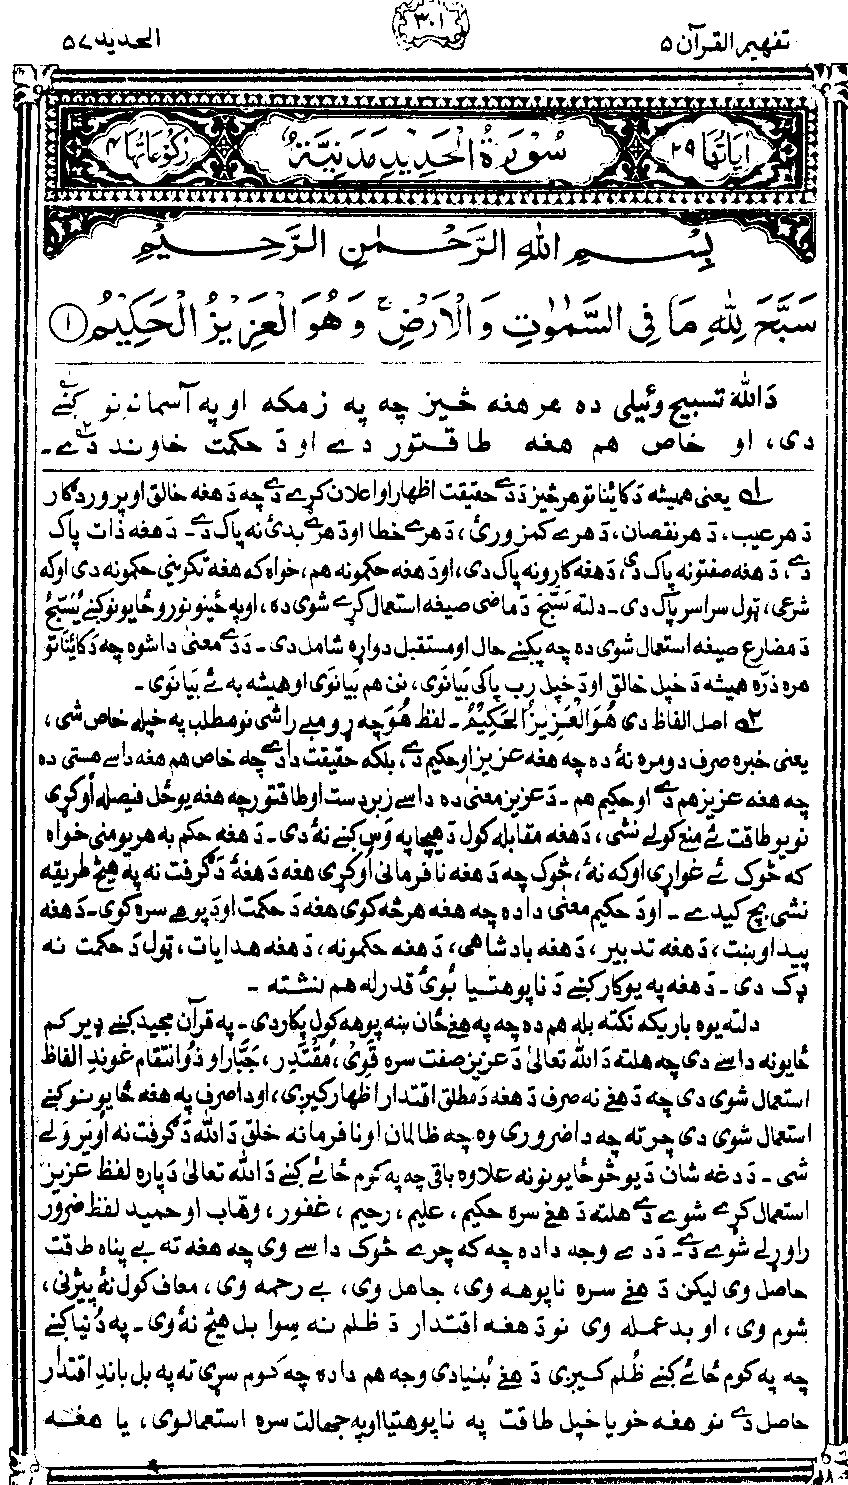 تفهیم القرآن ۵
۳۰۱
الحدید ۵۷
اٰیَاتُهَا ۲۹
سُوْرَةُ الْحَدِیْدِ مَدَنِیَّةٌ
رُکُوْعَاتُهَا ۴
بِسْمِ اللّٰهِ الرَّحْمٰنِ الرَّحِیْمِ
سَبَّحَ لِلّٰهِ مَا فِی السَّمٰوٰتِ وَالْاَرْضِ ۚ وَهُوَ الْعَزِیْزُ الْحَكِیْمُ ①
دَ الله تسبیح وئیلی ده هر هغه څیز چه په زمکه او په آسمانونو کښے
دی، او خاص هم هغه طاقتور دے او دَ حکمت خاوند دے۔
۱ یعنی همیشه دَ کائناتو هر څیز دَ دے حقیقت اظهار او اعلان کړے دے چه دَ هغه خالق او پروردگار
دَ هر عیب، دَ هر نقصان، دَ هرے کمزورئ، دَ هرے خطا او دَ هرے بدئ نه پاک دے۔ دَ هغه ذات پاک
دے، دَ هغه صفتونه پاک دی، دَ هغه کارونه پاک دی، او دَ هغه حکمونه هم، خواه که هغه تکوینی حکمونه دی او که
شرعی، ټول سراسر پاک دی۔ دلته سَبَّحَ دَ ماضی صیغه استعمال کړے شوی ده، او په ځینو نورو ځایونو کښے یُسَبِّحُ
دَ مضارع صیغه استعمال شوی ده چه پکښے حال او مستقبل دواړه شامل دی۔ دَ دے معنیٰ دا شوه چه دَ کائناتو
هره ذرّه همیشه دَ خپل خالق او دَ خپل رب پاکی بیانوی، نن هم بیانوی او همیشه به ئے بیانوی۔
۲ اصل الفاظ دی هُوَ الْعَزِیْزُ الْحَکِیْمُ۔ لفظ هُوَ چه رومبے راشی نو مطلب په خپله خاص شی،
یعنی خبره صرف دومره نهٔ ده چه هغه عزیز او حکیم دے، بلکه حقیقت دا دے چه خاص هم هغه داسے هستی ده
چه هغه عزیز هم دے او حکیم هم۔ دَ عزیز معنیٰ ده داسے زبردست او طاقتور چه هغه یو ځل فیصله اوکړی
نو یو طاقت ئے منع کولے نشی، دَ هغه مقابله کول دَ هیچا په وَس کښے نهٔ دی۔ دَ هغه حکم به هر یو منی خواه
که څوک ئے غواړی او که نهٔ، څوک چه دَ هغه نافرمانی اوکړی هغه دَ هغهٔ دَ گرفت نه په هیڅ طریقه
نشی بچ کیدے۔ او دَ حکیم معنیٰ دا ده چه هغه هر څه کوی هغه دَ حکمت او دَ پوهے سره کوی۔ دَ هغه
پیداوښت، دَ هغه تدبیر، دَ هغه بادشاهی، دَ هغه حکمونه، دَ هغه هدایات، ټول دَ حکمت نه
ډک دی۔ دَ هغه په یو کار کښے دَ ناپوهتیا بُوئ قدرله هم نشته۔
دلته یوه باریکه نکته بله هم ده چه په هغے ځان ښه پوهه کول پکار دی۔ په قرآن مجید کښے ډیر کم
ځایونه داسے دی چه هلته دَ الله تعالیٰ دَ عزیز صفت سره قَوِیٌّ، مُقْتَدِر، جَبَّار او ذُو انتقام غوندِ الفاظ
استعمال شوی دی چه دَ هغے نه صرف دَ هغه دَ مطلق اقتدار اظهار کیږی، او دا صرف په هغه ځایونو کښے
استعمال شوی دی چرته چه دا ضروری وه چه ظالمان او نافرمانه خلق دَ الله دَ گرفت نه اویرولے
شی۔ دَ دغه شان دَ یو څو ځایونو نه علاوه باقی چه په کوم ځائے کښے دَ الله تعالیٰ دَ پاره لفظ عزیز
استعمال کړے شوے دے هلته دَ هغے سره حکیم، علیم، رحیم، غفور، وهّاب او حمید لفظ ضرور
راوړلے شوے دے۔ دَ دے وجه دا ده چه که چرے څوک داسے وی چه هغه ته بے پناه طاقت
حاصل وی لیکن دَ هغے سره ناپوهه وی، جاهل وی، بے رحمه وی، معاف کول نهٔ پیژنی،
شوم وی، او بدعمله وی نو دَ هغه اقتدار دَ ظلم نه سِوا بل هیڅ نهٔ وی۔ په دُنیا کښے
چه په کوم ځائے کښے ظُلم کیږی دَ هغے بُنیادی وجه هم دا ده چه کوم سړی ته په بل باندِ اقتدار
حاصل دے نو هغه خو یا خپل طاقت په ناپوهتیا او په جهالت سره استعمالوی، یا هغه